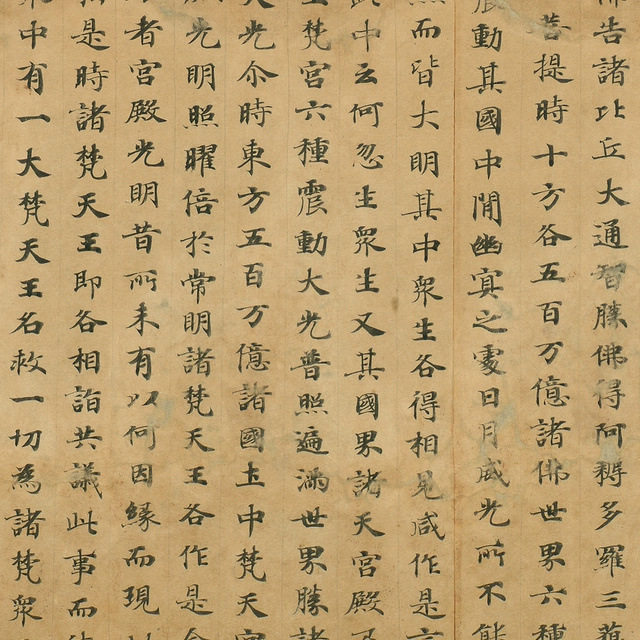 佛告諸比丘大通智勝佛得阿耨多羅三藐
菩提時十方各五百万億諸佛世界六種
震動其國中間幽冥之處日月威光所不能
而皆大明其中衆生各得相見咸作是
此中云何忽生衆生又其國界諸天宮殿乃
至梵宮六種震動大光普照遍滿世界勝諸
天光尒時東方五百万億諸國土中梵天宮
光明照曜倍於常明諸梵天王各作是念
者宮殿光明昔所未有以何因緣而現
相是時諸梵天王即各相詣共議此事而彼
衆中有一大梵天王名救一切為諸梵衆